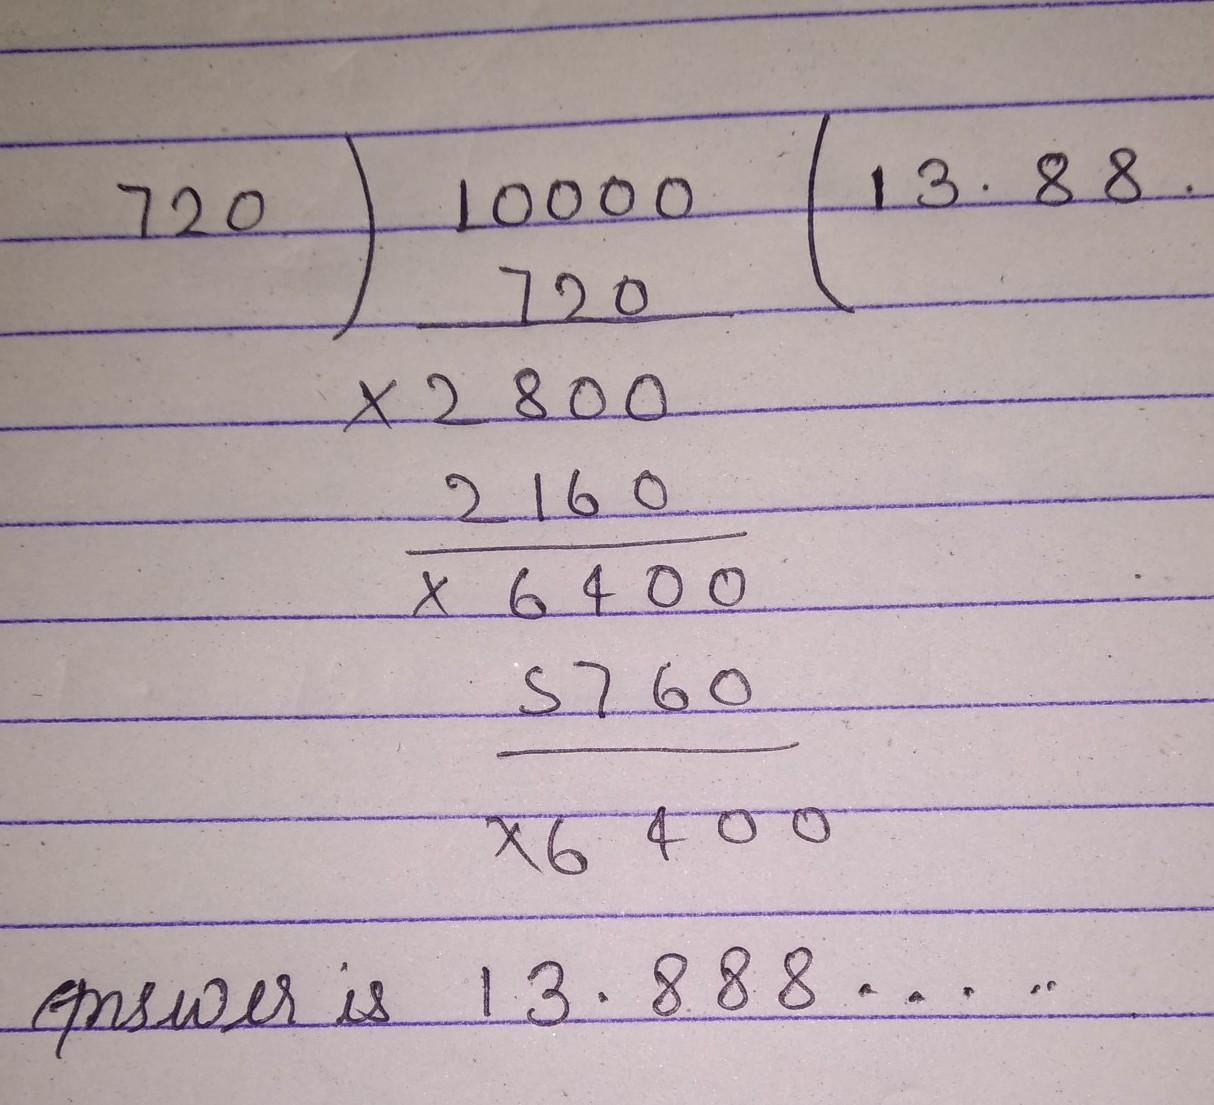 720 ) 10000 ( 13.88.
720
×2800
2160
× 6400
5760
×6400
answer is 13.888......